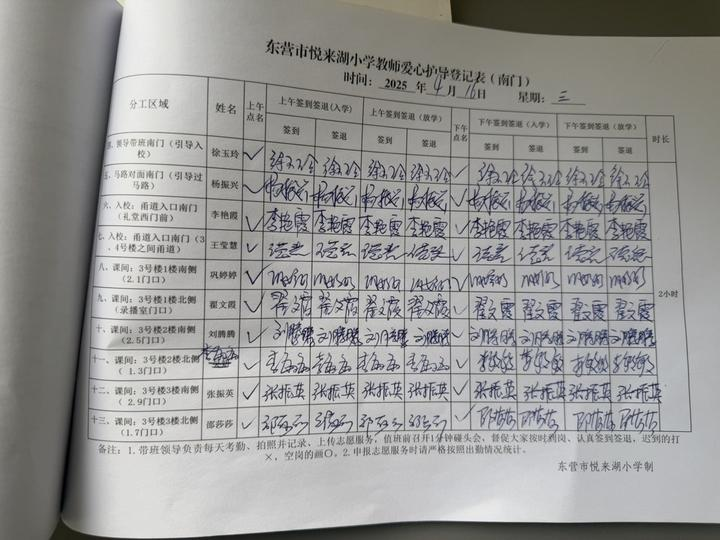 东营市悦来湖小学教师爱心护导登记表（南门）
时间： 2025 年 4 月 16 日 星期： 三
分工区域 姓名 上午点名 上午签到签退(入学) 上午签到签退（放学） 下午点名 下午签到签退（入学） 下午签到签退（放学） 时长
签到 签退 签到 签退 签到 签退 签到 签退
领导带班南门（引导入校） 徐玉玲 ✓ 徐玉玲 徐玉玲 徐玉玲 徐玉玲 ✓ 徐玉玲 徐玉玲 徐玉玲 徐玉玲
五、马路对面南门（引导过马路） 杨振兴 ✓ 杨振兴 杨振兴 杨振兴 杨振兴 ✓ 杨振兴 杨振兴 杨振兴 杨振兴
六、入校：甬道入口南门（礼堂西门前） 李艳霞 ✓ 李艳霞 李艳霞 李艳霞 李艳霞 ✓ 李艳霞 李艳霞 李艳霞 李艳霞
七、入校：甬道入口南门（3、4号楼之间甬道） 王莹慧 ✓ ✓
八、课间：3号楼1楼南侧（2.1门口） 巩婷婷 ✓ ✓
九、课间：3号楼1楼北侧（录播室门口） 翟文霞 ✓ 翟文霞 翟文霞 翟文霞 翟文霞 ✓ 翟文霞 翟文霞 翟文霞 翟文霞
十、课间：3号楼2楼南侧（2.5门口） 刘腾腾 ✓ 刘腾腾 刘腾腾 刘腾腾 刘腾腾 ✓ 刘腾腾 刘腾腾 刘腾腾 刘腾腾
十一、课间：3号楼2楼北侧（1.3门口） ✓ ✓
十二、课间：3号楼3楼南侧（2.9门口） 张振英 ✓ 张振英 张振英 张振英 张振英 ✓ 张振英 张振英 张振英 张振英
十三、课间：3号楼3楼北侧（1.7门口） 邵莎莎 ✓ 邵莎莎 邵莎莎 邵莎莎 邵莎莎 ✓ 邵莎莎 邵莎莎 邵莎莎 邵莎莎
2小时
备注：1. 带班领导负责每天考勤、拍照并记录、上传志愿服务，值班前召开1分钟碰头会，督促大家按时到岗、认真签到签退，迟到的打
×，空岗的画〇。2. 申报志愿服务时请严格按照出勤情况统计。
东营市悦来湖小学制